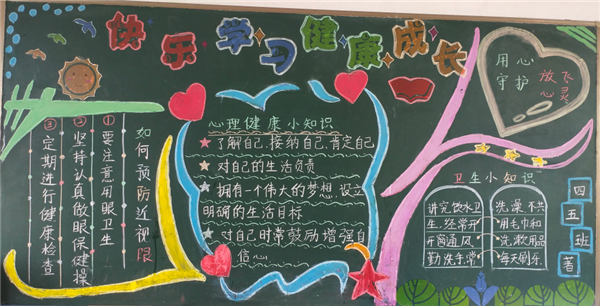 快乐学习健康成长
如何预防近视眼
①要注意用眼卫生
②坚持认真做眼保健操
③定期进行健康检查
心理健康小知识
★了解自己.接纳自己.肯定自己
★对自己的生活负责
★拥有一个伟大的梦想 设立
明确的生活目标
★对自己时常鼓励增强自
信心
用心
守护
放飞
心灵
卫生小知识
讲究饮水卫
生.经常开
开窗通风
勤洗手.常
洗澡.不共
用毛巾和
洗漱用品
每天刷牙
四五班著